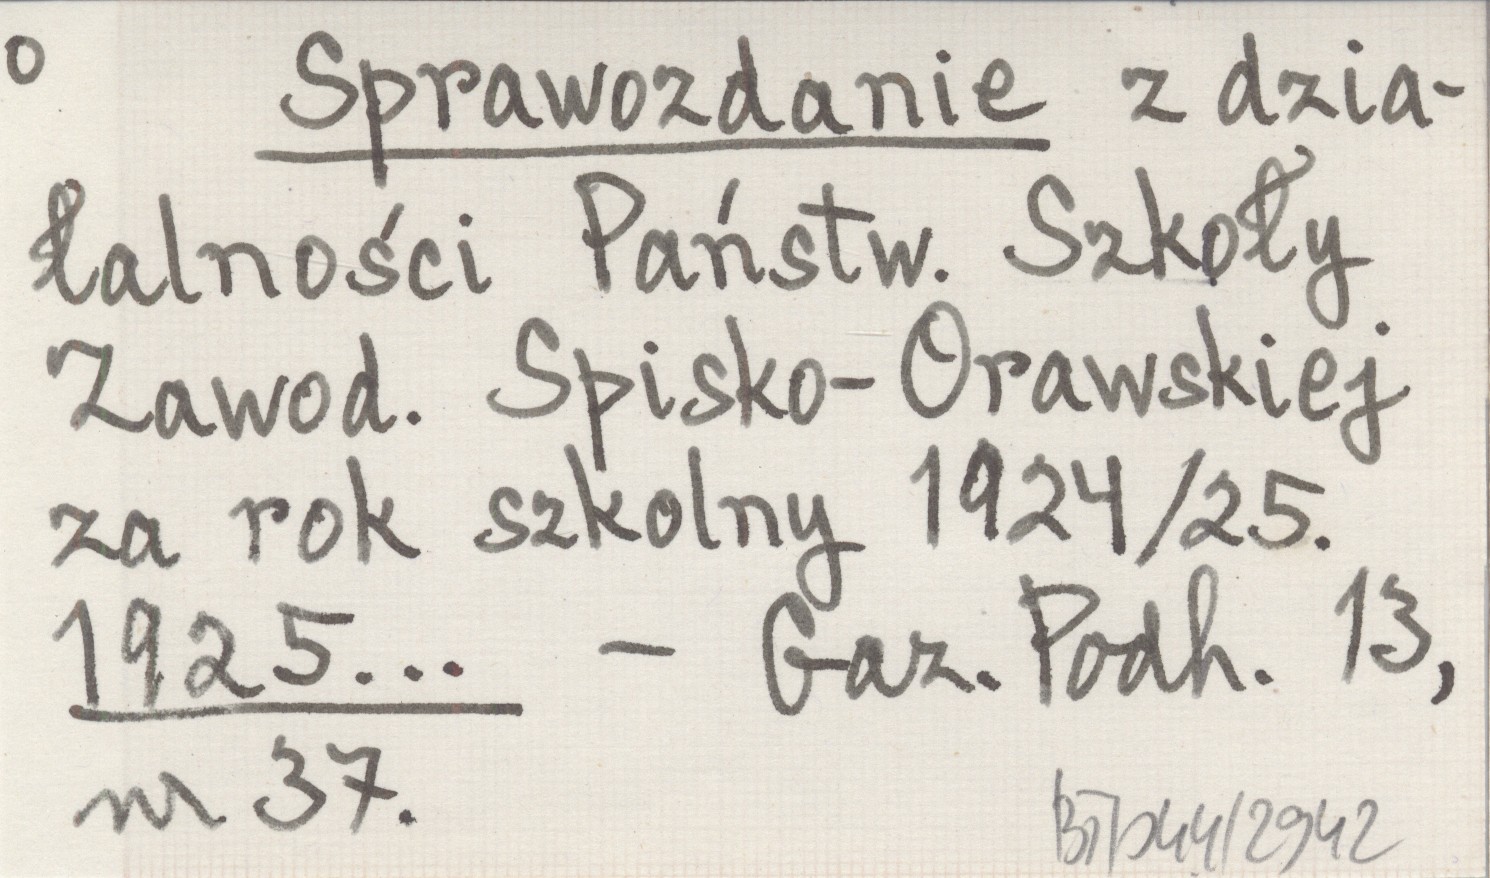 o Sprawozdanie z dzia-
łalności Państw. Szkoły
Zawod. Spisko-Orawskiej
za rok szkolny 1924/25.
1925... - Gaz. Podh. 13,
nr 37.